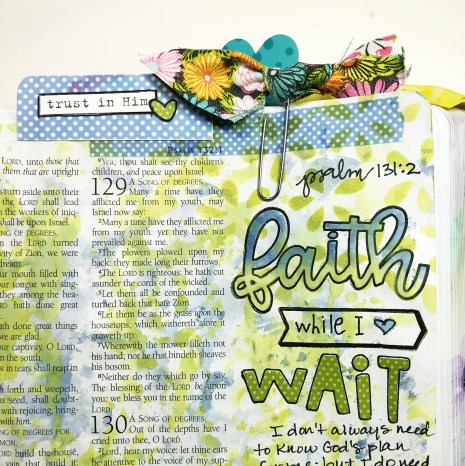 trust in Him
PSALM 132:1
LORD, unto those
that are upright
turn aside unto their
LORD shall lead
the workers of iniq-
shall be upon Israel.
SONG OF DEGREES.
LORD turned
of Zion, we were
dream.
our mouth filled with
our tongue with sing-
they among the hea-
hath done great
done great things
we are glad.
our captivity, O LORD,
in the south.
in tears shall reap in
forth and weepeth,
seed, shall doubt-
with rejoicing, bring-
with him.
SONG OF DEGREES FOR
SOLOMON.
LORD build the house,
6Yea, thou shalt see thy children's
children, and peace upon Israel.
129 A SONG OF DEGREES.
Many a time have they
afflicted me from my youth, may
Israel now say:
2Many a time have they afflicted me
from my youth: yet they have not
prevailed against me.
3The plowers plowed upon my
back: they made long their furrows.
4The LORD is righteous: he hath cut
asunder the cords of the wicked.
5Let them all be confounded and
turned back that hate Zion.
6Let them be as the grass upon the
housetops, which withereth afore it
groweth up:
7Wherewith the mower filleth not
his hand; nor he that bindeth sheaves
his bosom.
8Neither do they which go by say,
The blessing of the LORD be upon
you: we bless you in the name of the
LORD.
130 A SONG OF DEGREES.
Out of the depths have I
cried unto thee, O LORD.
2Lord, hear my voice: let thine ears
be attentive to the voice of my sup-
psalm 131:2
faith
while I
WAiT
I don't always need
to know God's plan